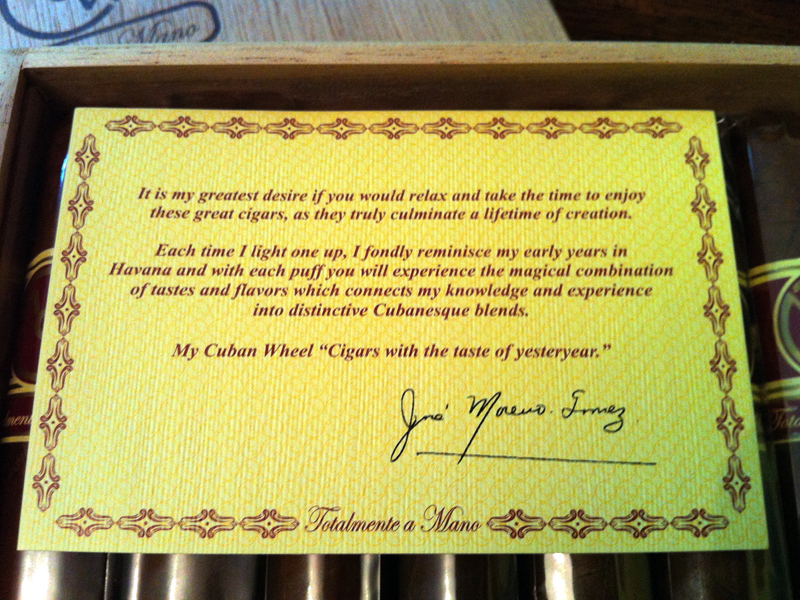 Mano
It is my greatest desire if you would relax and take the time to enjoy
these great cigars, as they truly culminate a lifetime of creation.
Each time I light one up, I fondly reminisce my early years in
Havana and with each puff you will experience the magical combination
of tastes and flavors which connects my knowledge and experience
into distinctive Cubanesque blends.
My Cuban Wheel “Cigars with the taste of yesteryear.”
José Moreno. Gomez
Totalmente a Mano